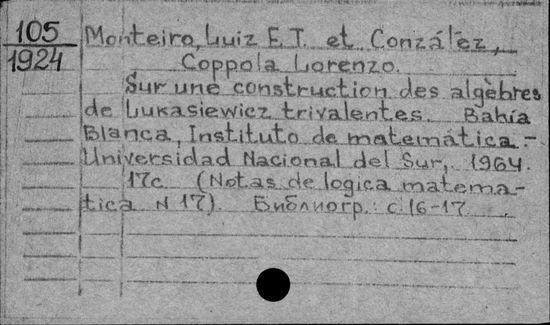 105
1924
Monteiro, Luiz E.T. et Conzález,
Coppola Lorenzo.
Sur une construction des algèbres
de Lukasiewicz trivalentes. Bahía
Blanca, Instituto de matemática.-
Universidad Nacional del Sur, 1964.
17c. (Notas de logica matema-
tica N 17). Библиогр.: с.16-17.